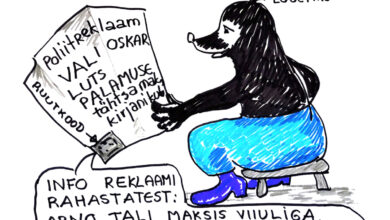 Poliitreklaam
VALI OSKAR
LUTS
PALAMUSE
tähtsamaks
kirjanikuks
RUUTKOOD
INFO REKLAAMI
RAHASTATEST:
ARNO TALI MAKSIS VIIULIGA